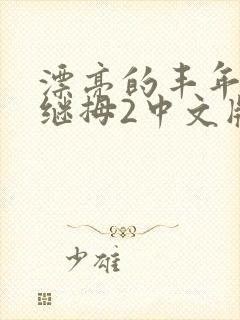 漂亮的丰年
继拇2中文版
少雄